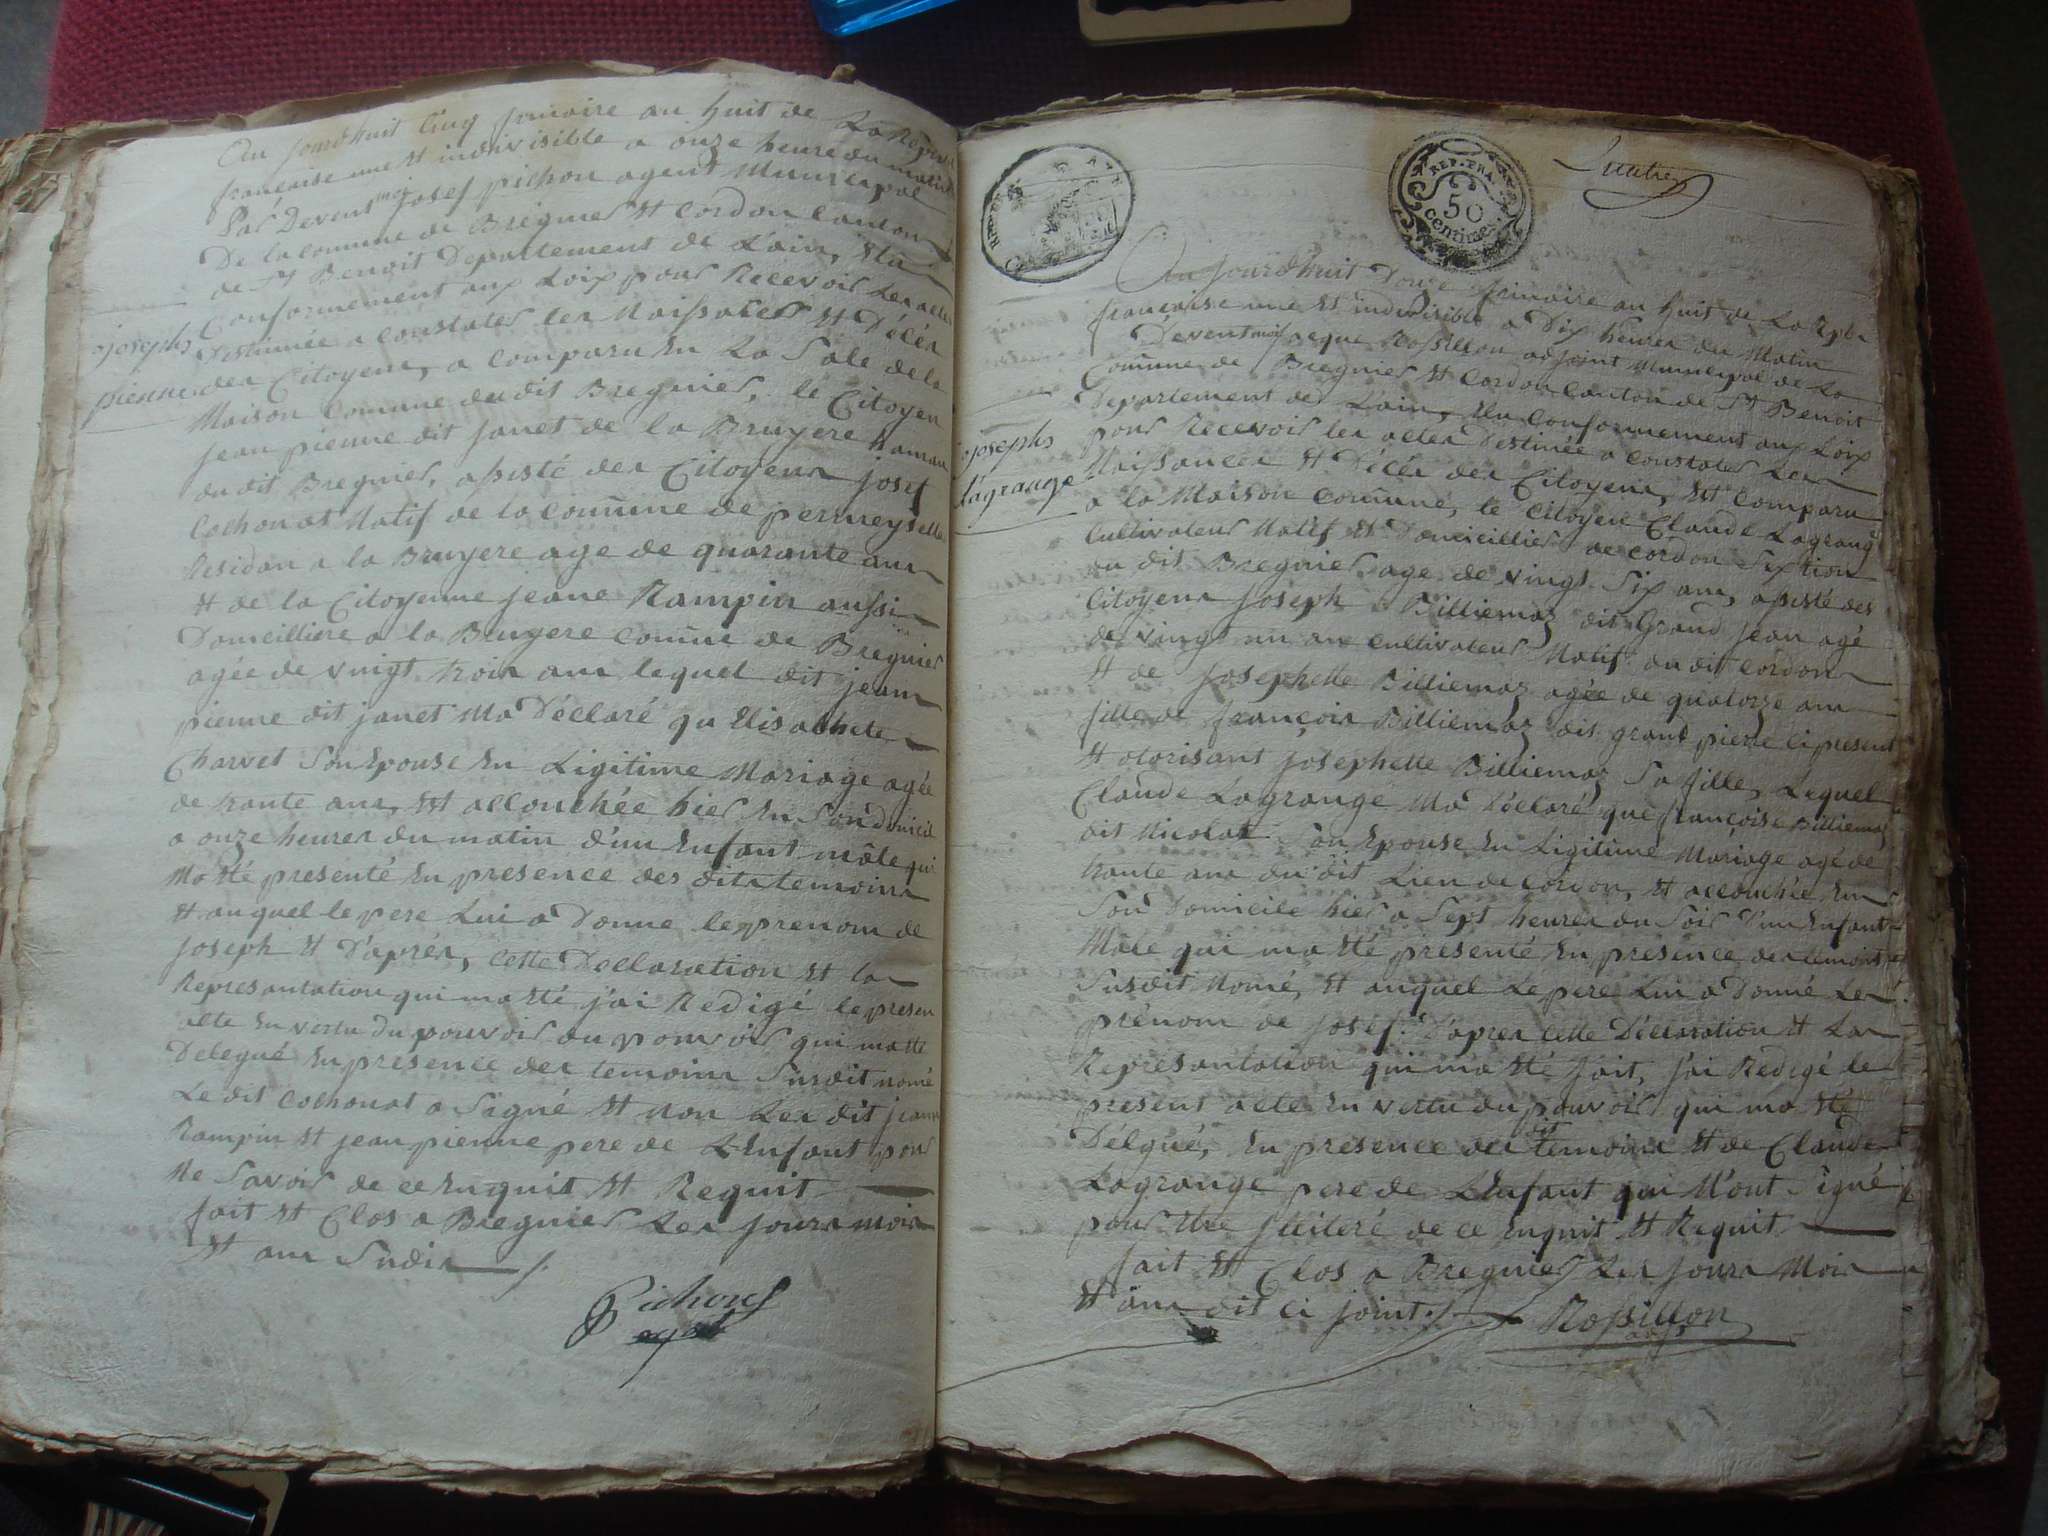 Au jourdhuit Cinq frimaire an huit de La Repu
francaise une Et indivisible a onze heure du matin
Par Devent moi Josef pichon agent Municipal
De la comune de Bregnier Et Cordon Canton
de St Benoit Departement de L'ain, Elu
Conformement aux Loix pour Recevoir Les actes
Destinnée a constater les Naissances Et Décés
josephs
pienne
des Citoyens, a comparu En La Sale de la
Maison Comune du dit Bregnier, le Citoyen
jean pienne dit janet de la Bruyere hameau
du dit Bregnier, assisté des Citoyens josef
Cochonat Natif de la comune de permeyselle
Residan a la Bruyere age de quarante ans
Et de la Citoyenne jeane Rampin aussi
Domeilliere a la Bruyere comune de Bregnier
agée de vingt trois ans lequel dit jean
pienne dit janet Ma Déclaré qu Elisabhete
Charvet Son Epouse En Ligitime Mariage agée
de trante ans, Est accouchée hier En Son Domicile
a onze heures du matin d'un Enfant mâle qui
Ma Eté presenté En presence des dits temoins
Et auquel le pere Lui a Donne le prenom de
Joseph Et D'aprés, cette Declaration Et la
Represantation qui ma Eté j'ai Redigé le presen
acte En vertu Du pouvoir du pouvoir qui ma Eté
Delegué En presence des temoins Susdit nomé
Le dit Cochonat a Signé Et non Les dit jeane
Rampin Et jean pienne pere de L'Enfant pour
Ne Savoir de ce Enquit Et Requit
fait Et Clos a Bregnier Les jours mois
Et ans Sudis
Pichon
agt
REP. FRA.
50
centime
Au jourdhuit Douze frimaire an huit de La Repu
francaise une Et indivisible a Dix heures du Matin
Devent moi jaque Rossillon adjoint Municipal de La
Comune de Bregnier Et Cordon Canton de St Benoit
Departement de L'ain, Elu Conformement aux Loix
pour Recevoir les actes Destinée a constater Les
josephs
Lagrange
Naissances Et Décés des Citoyens, Est Comparu
a la Maison Comune, le Citoyen Claude Lagrange
Cultivateur Natif Et Domicillier de Cordon Section
du dit Bregnier age de vingt Six ans, assisté des
Citoyens Joseph Billiemaz dit Grand jean agé
de vingt un an Cultivateur Natif du dit Cordon
Et de Josephette Billiemaz agée de quatorze ans
fille de françois Billiemaz dit grand pierre Ci present
Et otorisant Josephette Billiemaz Sa fille, Lequel
Claude Lagrange Ma Déclaré que françoise Billiemaz
dit Nicolat Son Epouse En Ligitime Mariage agé de
trante ans du dit Lieu de Cordon, Et accouchée En
Son Domicile hier a Sept heures du Soir D'un Enfant
Mâle qui ma Eté presenté En presence des temoins
Susdit Nomé, Et auquel Le pere Lui a Donné Le
prénom de Josef. D'apres cette Déclaration Et La
Représantation qui ma Eté fait, j'ai Redigé le
present acte En vertu du pouvoir qui ma Eté
Délgué, En presence des dit temoins Et de Claude
Lagrange pere de L'Enfant qui N'ont Signé
pour Etre de ce Enquit Et Requit
fait Et Clos a Bregnier Les jours Mois
Et ans dit Ci joint
Rossillon
adj